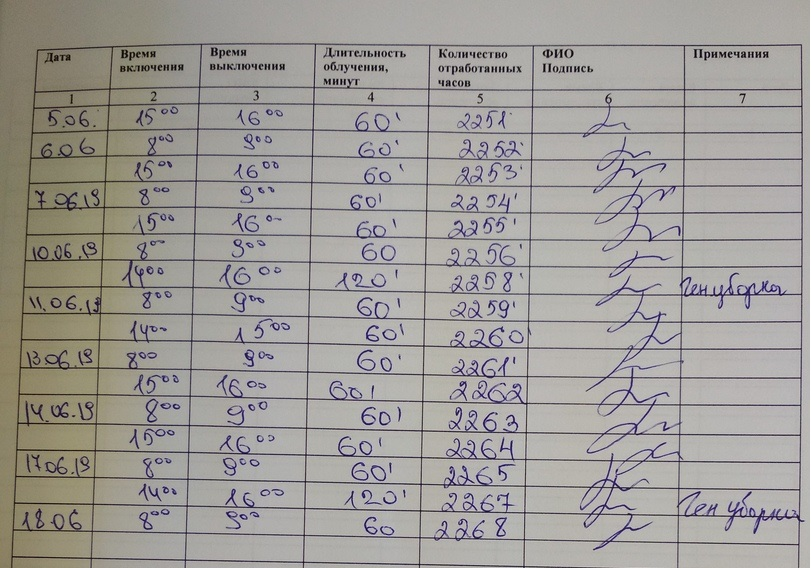 Дата Время включения Время выключения Длительность облучения, минут Количество отработанных часов ФИО Подпись Примечания
1 2 3 4 5 6 7
5.06. 15⁰⁰ 16⁰⁰ 60' 2251
6.06 8⁰⁰ 9⁰⁰ 60' 2252
15⁰⁰ 16⁰⁰ 60' 2253
7.06.19 8⁰⁰ 9⁰⁰ 60' 2254
15⁰⁰ 16⁰⁰ 60' 2255
10.06.19 8⁰⁰ 9⁰⁰ 60 2256
14⁰⁰ 16⁰⁰ 120' 2258 Ген.уборка
11.06.19 8⁰⁰ 9⁰⁰ 60' 2259
14⁰⁰ 15⁰⁰ 60' 2260
13.06.19 8⁰⁰ 9⁰⁰ 60' 2261
15⁰⁰ 16⁰⁰ 60' 2262
14.06.19 8⁰⁰ 9⁰⁰ 60' 2263
15⁰⁰ 16⁰⁰ 60' 2264
17.06.19 8⁰⁰ 9⁰⁰ 60' 2265
14⁰⁰ 16⁰⁰ 120' 2267 Ген уборка
18.06 8⁰⁰ 9⁰⁰ 60 2268